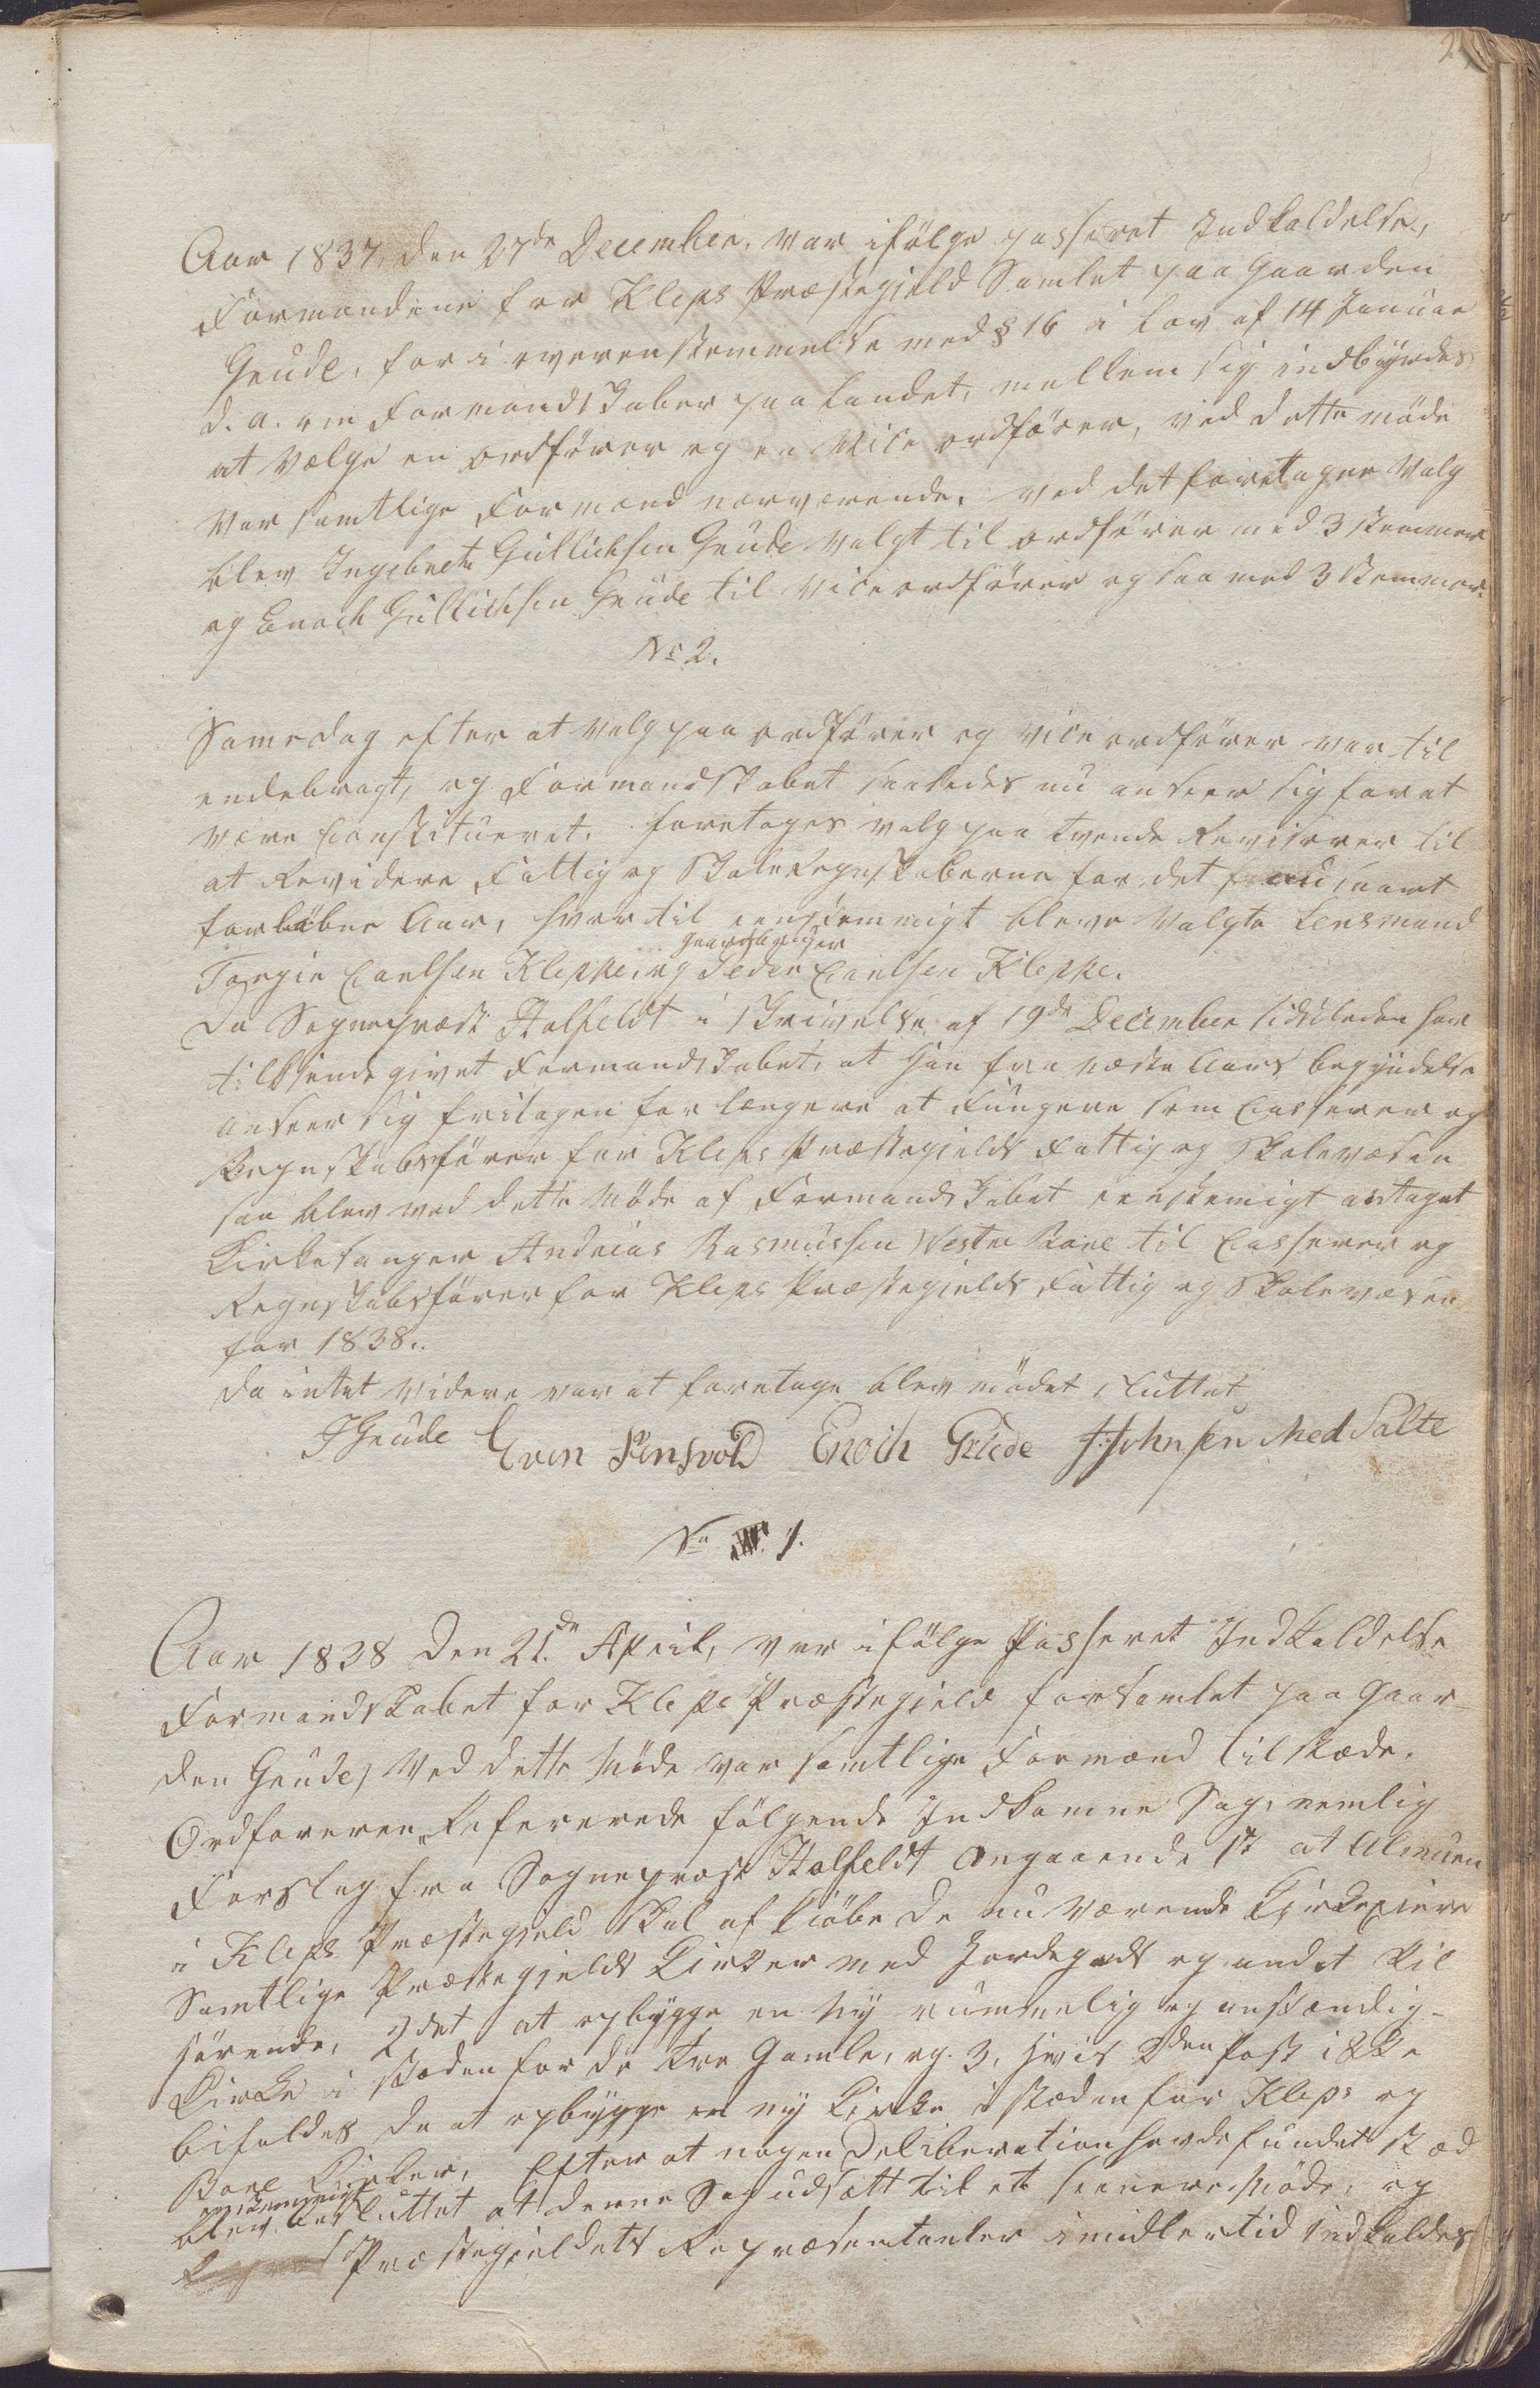 2
Aar 1837, den 27de December, var ifølge passeret Indkaldelse,
Formændene for Kleps Præstegjeld Samlet paa Gaarden
Grude, for i overenstemmelse med § 16 i Lov af 14 Januar
d. a. om Formandskaber paa Landet, mellem sig indbyrdes
at vælge en Ordfører og en Vice ordfører, ved dette møde
var samtlige Formænd nærværende. Ved det foretagne Valg
blev Ingebreth Gullichsen Grude valgt til ordfører med 3 stemmer
og Enoch Gullichsen Grude til Vice ordfører og saa med 3 stemmer.
No 2.
Same dag efter at valg paa ordfører og vice ordfører var til
endebragt, og Formandskabet saaledes nu anseer sig for at
være Constitueret, foretages valg paa tvende Revisorer til
at Revidere Fattig og Skole Regnskaberne for det snart
forløbne Aar, hvortil eenstemmigt bleve Valgte Lensmand
Gaardbruger
Torgir Carlsen Kleppe, og Peder Carlsen Kleppe.
Da Sognepræst Halfeldt i Skrivelse af 19de December sidstleden har
tilkjende givet Formandskabet, at han fra næste Aars begyndelse
anseer sig fritagen for længere at Fungere som Casserer og
Regnskabsfører for Kleps Præstegjelds Fattig og Skolevæsen
saa blev ved dette Møde af Formandskabet eenstemigt antaget
Kirkesanger Andreas Rasmussen Vestre Bore til Casserer og
Regnskabsfører for Kleps Præstegjelds Fattig og Skolevæsen
for 1838.
da intet videre var at foretage blev mødet sluttet
I Grude Even Pensvold Enoch Grude J: Johnsen Med Salte
No 1.
Aar 1838 den 21de April, var ifølge Passeret Indkaldelse
Formandskabet for Kleps Præstegjeld forsamlet paa Gaar-
den Grude, Ved dette Møde var samtlige Formænd tilstæde.
Ordføreren Refererede følgende Indkomne Sag, nemlig
Forslag fra Sognepræst Halfeldt angaaende 1st at Almuen
i Kleps Præstegjeld skal afkiøbe de nu værende Kirkeejere
Samtlige Præstegjelds Kirker med Jordegods og andet til
hørende, 2det at opbygge en ny rummelig og anstændig
Kirke i stæden for de tre Gamle, og 3, hvis 2den Post ikke
bifaldes da at opbygge en ny Kirke i stæden for Kleps og
Bore Kirker, Efter at nogen Deliberation havde fundet stæd
eenstemmigt
blev besluttet at denne Sag udsatt til et senere Møde, og
Præstegjeldets Repræsentanter imidlertid indkaldes